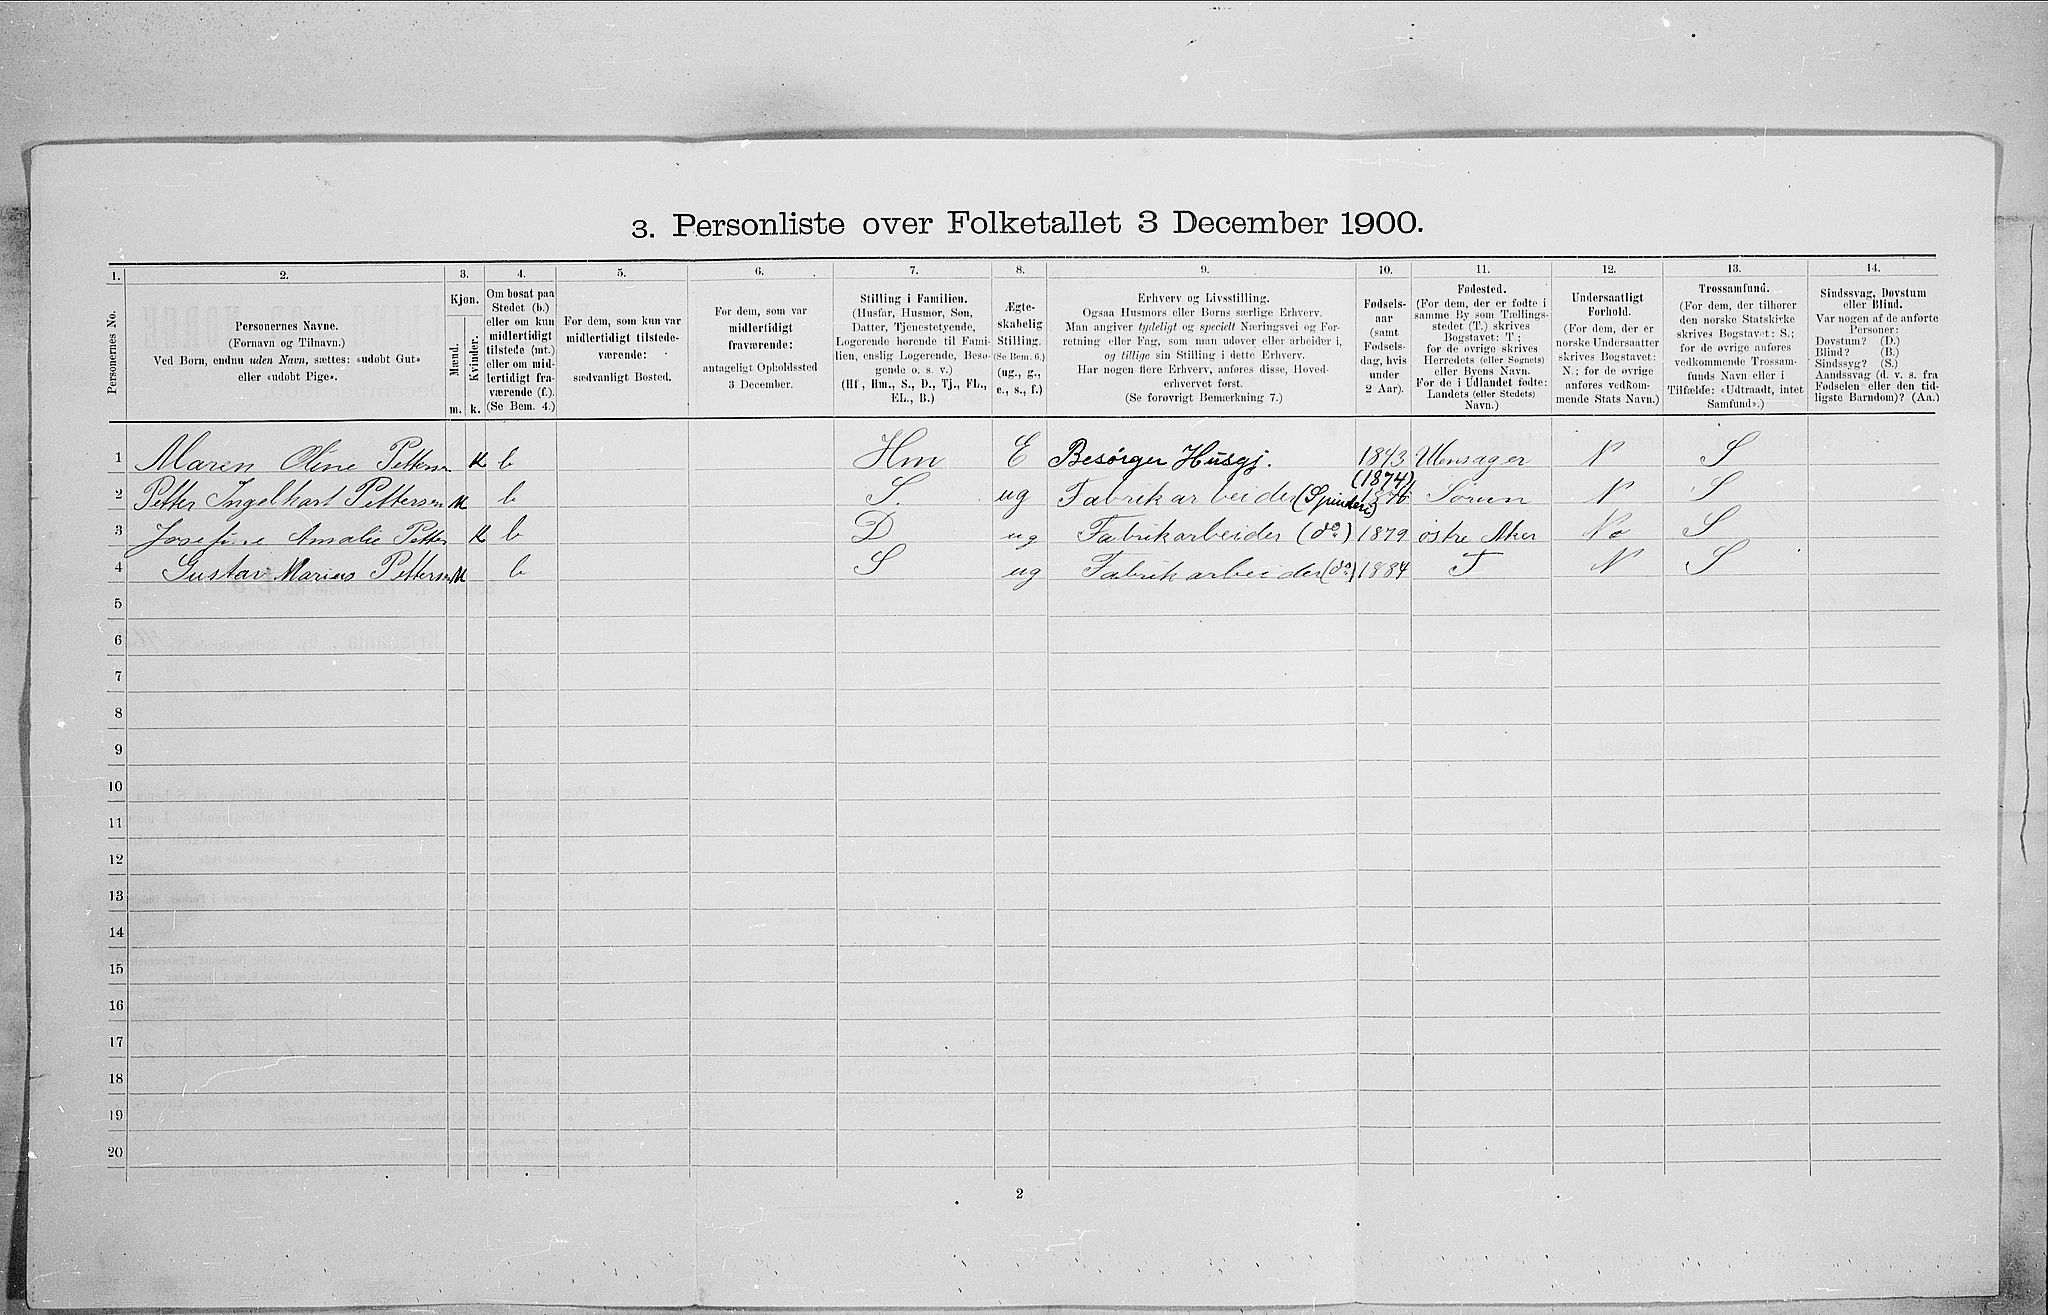 3. Personliste over Folketallet 3 December 1900.
1. 2. 3. 4. 5. 6. 7. 8. 9. 10. 11. 12. 13. 14.
Personernes No.
Personernes Navne.
(Fornavn og Tilnavn.)
Ved Børn, endnu uden Navn, sættes: «udøbt Gut»
eller «udøbt Pige».
Kjøn.
Mænd.
Kvinder.
m. k.
Om bosat paa
Stedet (b.)
eller om kun
midlertidigt
tilstede (mt.)
eller om mid-
lertidigt fra-
værende (f.).
(Se Bem. 4.)
For dem, som kun var
midlertidigt tilstede-
værende:
sædvanligt Bosted.
For dem, som var
midlertidigt
fraværende:
antageligt Opholdssted
3 December.
Stilling i Familien.
(Husfar, Husmor, Søn,
Datter, Tjenestetyende,
Logerende hørende til Fami-
lien, enslig Logerende, Besø-
gende o. s. v.)
(Hf, Hm., S., D., Tj., FL.,
EL., B.)
Ægte-
skabelig
Stilling.
(Se Bem. 6.)
(ug., g.,
e., s., f.)
Erhverv og Livsstilling.
Ogsaa Husmors eller Børns særlige Erhverv.
Man angiver tydeligt og specielt Næringsvei og For-
retning eller Fag, som man udøver eller arbeider i,
og tillige sin Stilling i dette Erhverv.
Har nogen flere Erhverv, anføres disse, Hoved-
erhvervet først.
(Se forøvrigt Bemærkning 7.)
Fødsels-
aar
(samt
Fødsels-
dag, hvis
under
2 Aar).
Fødested.
(For dem, der er fødte i
samme By som Tællings-
stedet (T.) skrives
Bogstavet: T.;
for de øvrige skrives
Herredets (eller Sognets)
eller Byens Navn.
For de i Udlandet fødte:
Landets (eller Stedets)
Navn.)
Undersaatligt
Forhold.
(For dem, der er
norske Undersaatter
skrives Bogstavet:
N.; for de øvrige
anføres vedkom-
mende Stats Navn.)
Trossamfund.
(For dem, der tilhører
den norske Statskirke
skrives Bogstavet: S.;
for de øvrige anføres
vedkommende Trossam-
funds Navn eller i
Tilfælde: «Udtraadt, intet
Samfund».)
Sindssvag, Døvstum
eller Blind.
Var nogen af de anførte
Personer:
Døvstum? (D.)
Blind? (B.)
Sindssyg? (S.)
Aandssvag (d. v. s. fra
Fødselen eller den tid-
ligste Barndom)? (Aa.)
1 Maren Oline Pettersen K b Hm E Besørger Husgj. 1843 Ullensager N S
(1874)
2 Petter Ingelhart Pettersen M b S. ug Fabrikarbeider (Spinderi) 1876 Sørum N S
3 Josefine Amalie Petters K b D ug Fabrikarbeider (do) 1879 østre Aker No S
4 Gustav Marius Pettersen M b S ug Fabrikarbeider (do) 1884 T N S
5
6
7
8
9
10
11
12
13
14
15
16
17
18
19
20
2